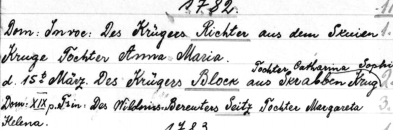 1782.
Dom: Invoc: Des Krügers Richter aus dem Skuien
Kruge Tochter Anna Maria.
Tochter Catharina Sophi
d. 15t März. Des Krügers Block aus Skrabben Krug
2.
Dom: XIX p. Trin: Des Wildniss-Bereuters Seitz Tochter Margareta
3.
Helena.
1783.